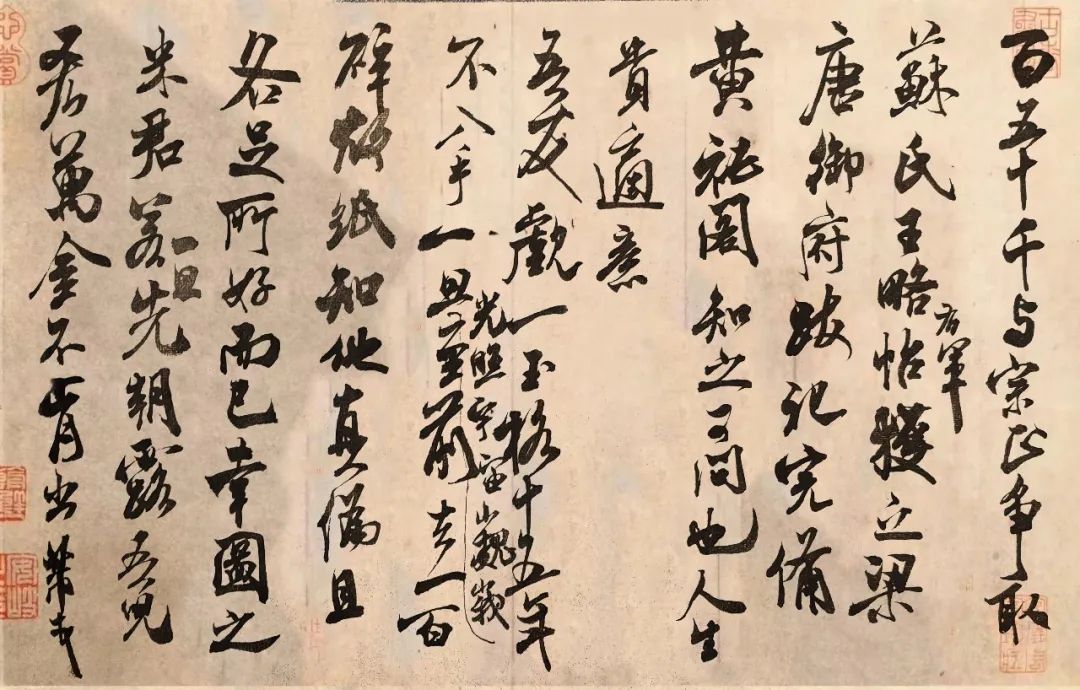 百五十千与宗正争取
蘇氏王略帖右軍獲之梁
唐御府跋記完備
黄祕閣知之可問也人生
貴適意
吾友覷一玉格十五年
不入手一旦光照宇宙巍峩至前去一百
碎故紙知他真偽且
各足所好而已幸圖之
米君若一旦先朝露吾兒
吝萬金不肯出芾頓首